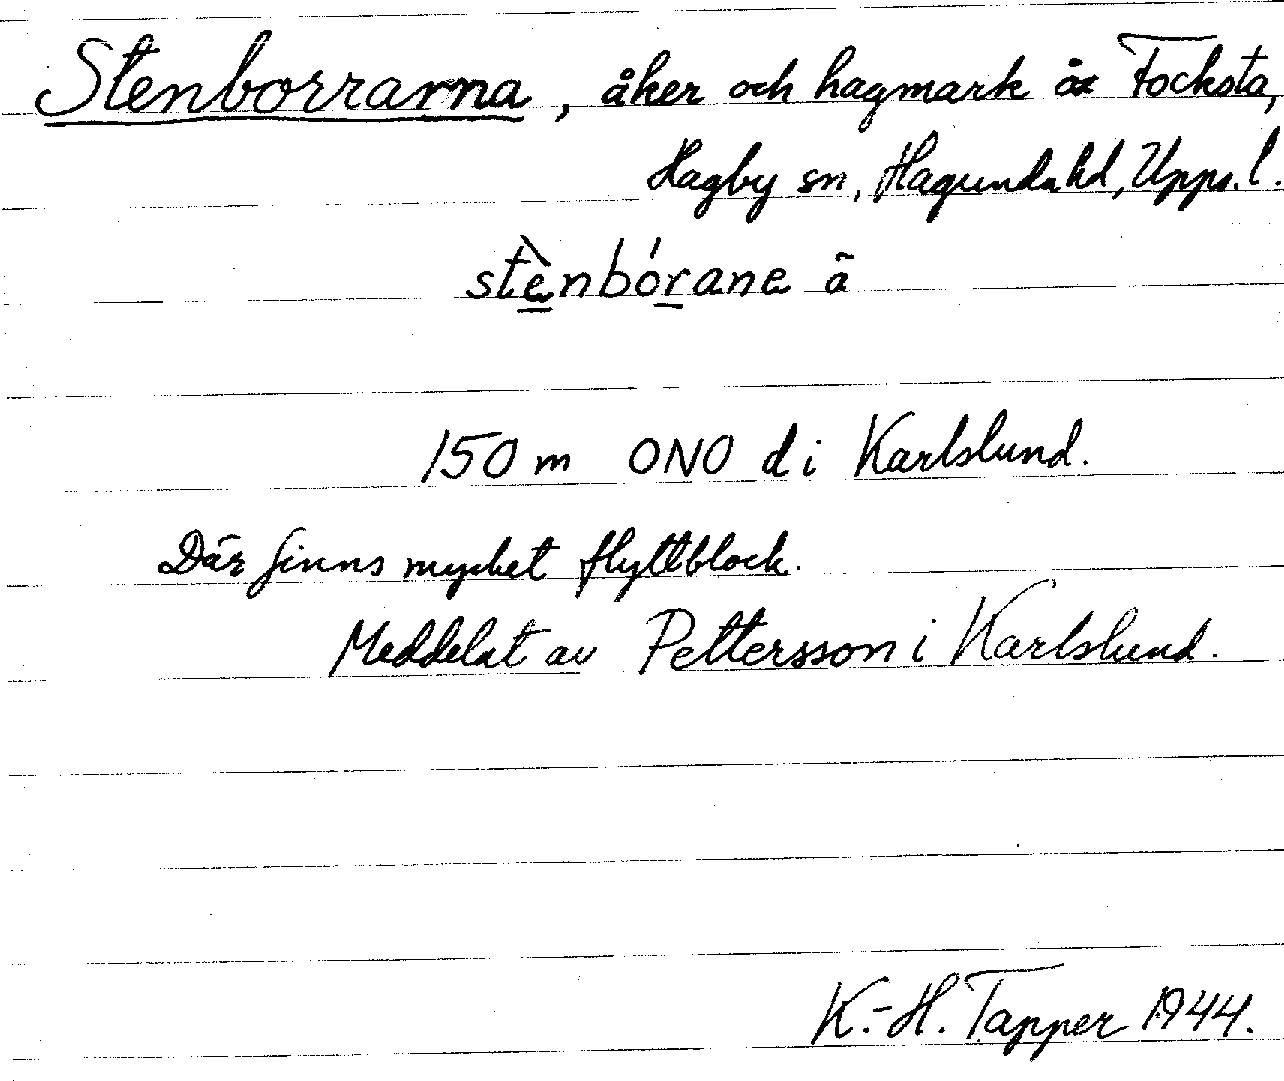 Stenborrarna, åker och hagmark å Focksta,
Hagby sn, Hagunda hd, Upps. l.
stènbórane ã
150 m ONO d i Karlslund.
Där finns mycket flyttblock.
Meddelat av Pettersson i Karlslund.
K.-H. Tapper 1944.